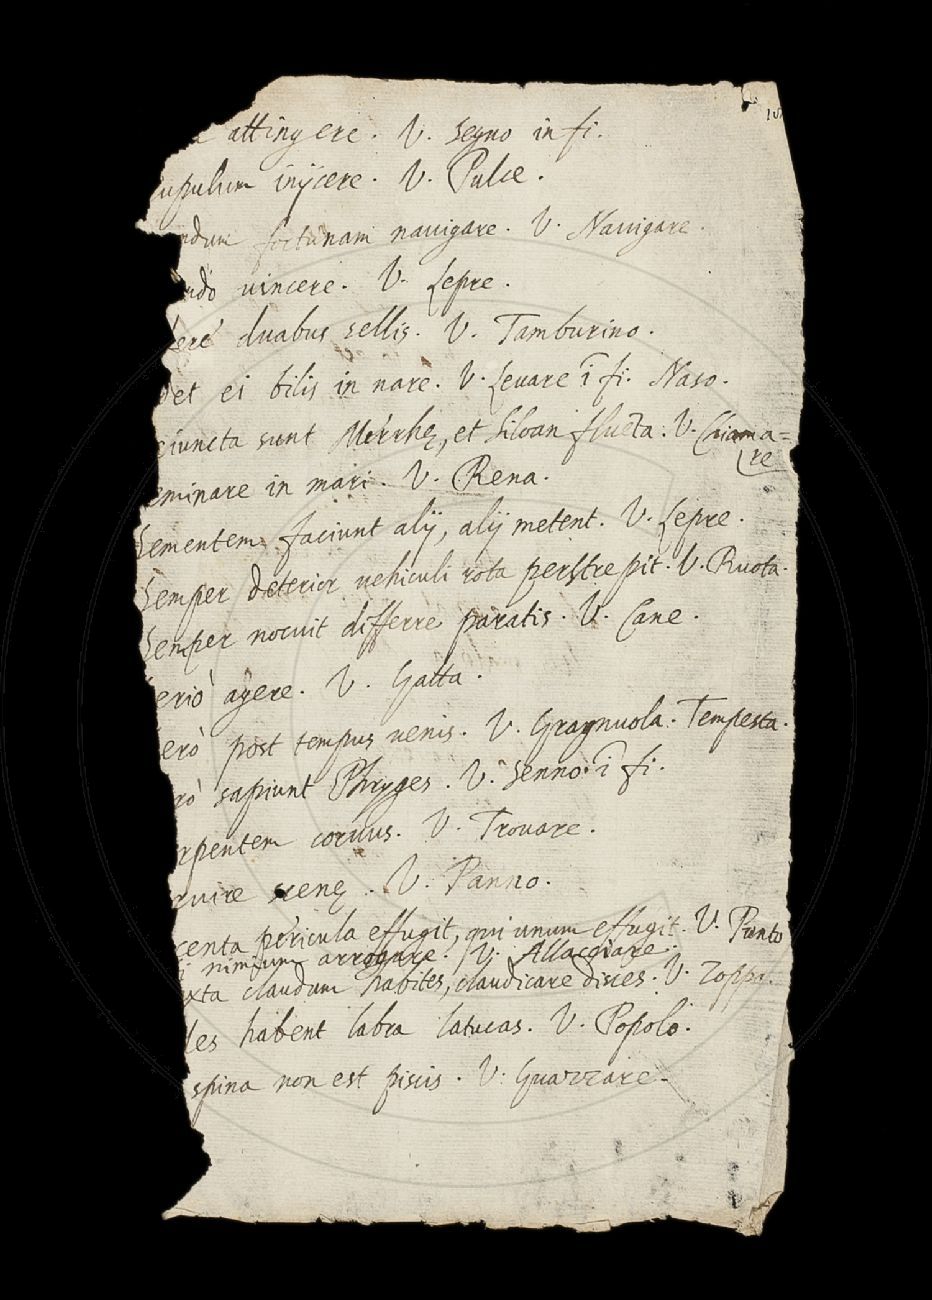 attingere. V. Segno in fi.
upulum inijcere. V. Pulce.
ndum fortunam nauigare. V. Nauigare.
ndo vincere. V. Lepre.
ere duabus sellis. V. Tamburino.
det ei bilis in nare. V. Leuare ī fi. Naso.
ciuncta sunt Mérrhę, et Siloan fluēta. V. Chiama=
re
eminare in mari. V. Rena.
Sementem faciunt alij, alij metent. V. Lepre.
Semper deterior uehiculi rota perstrepit. V. Ruota.
Semper nocuit differre paratis. V. Cane.
eriò agere. V. Gatta.
erò post tempus uenis. V. Gragnuola. Tempesta.
rò sapiunt Phryges. V. Senno ī fi.
rpentem coruus. V. Trouare.
ruire scenę. V. Panno.
centa péricula effugit, qui unum effugit. V. Punto
i nimium arrogare. V. Allacciare.
xta claudum habites, claudicare disces. V. Zoppo.
les habent labra latucas. V. Popolo.
spina non est piscis. V. Guazzare.